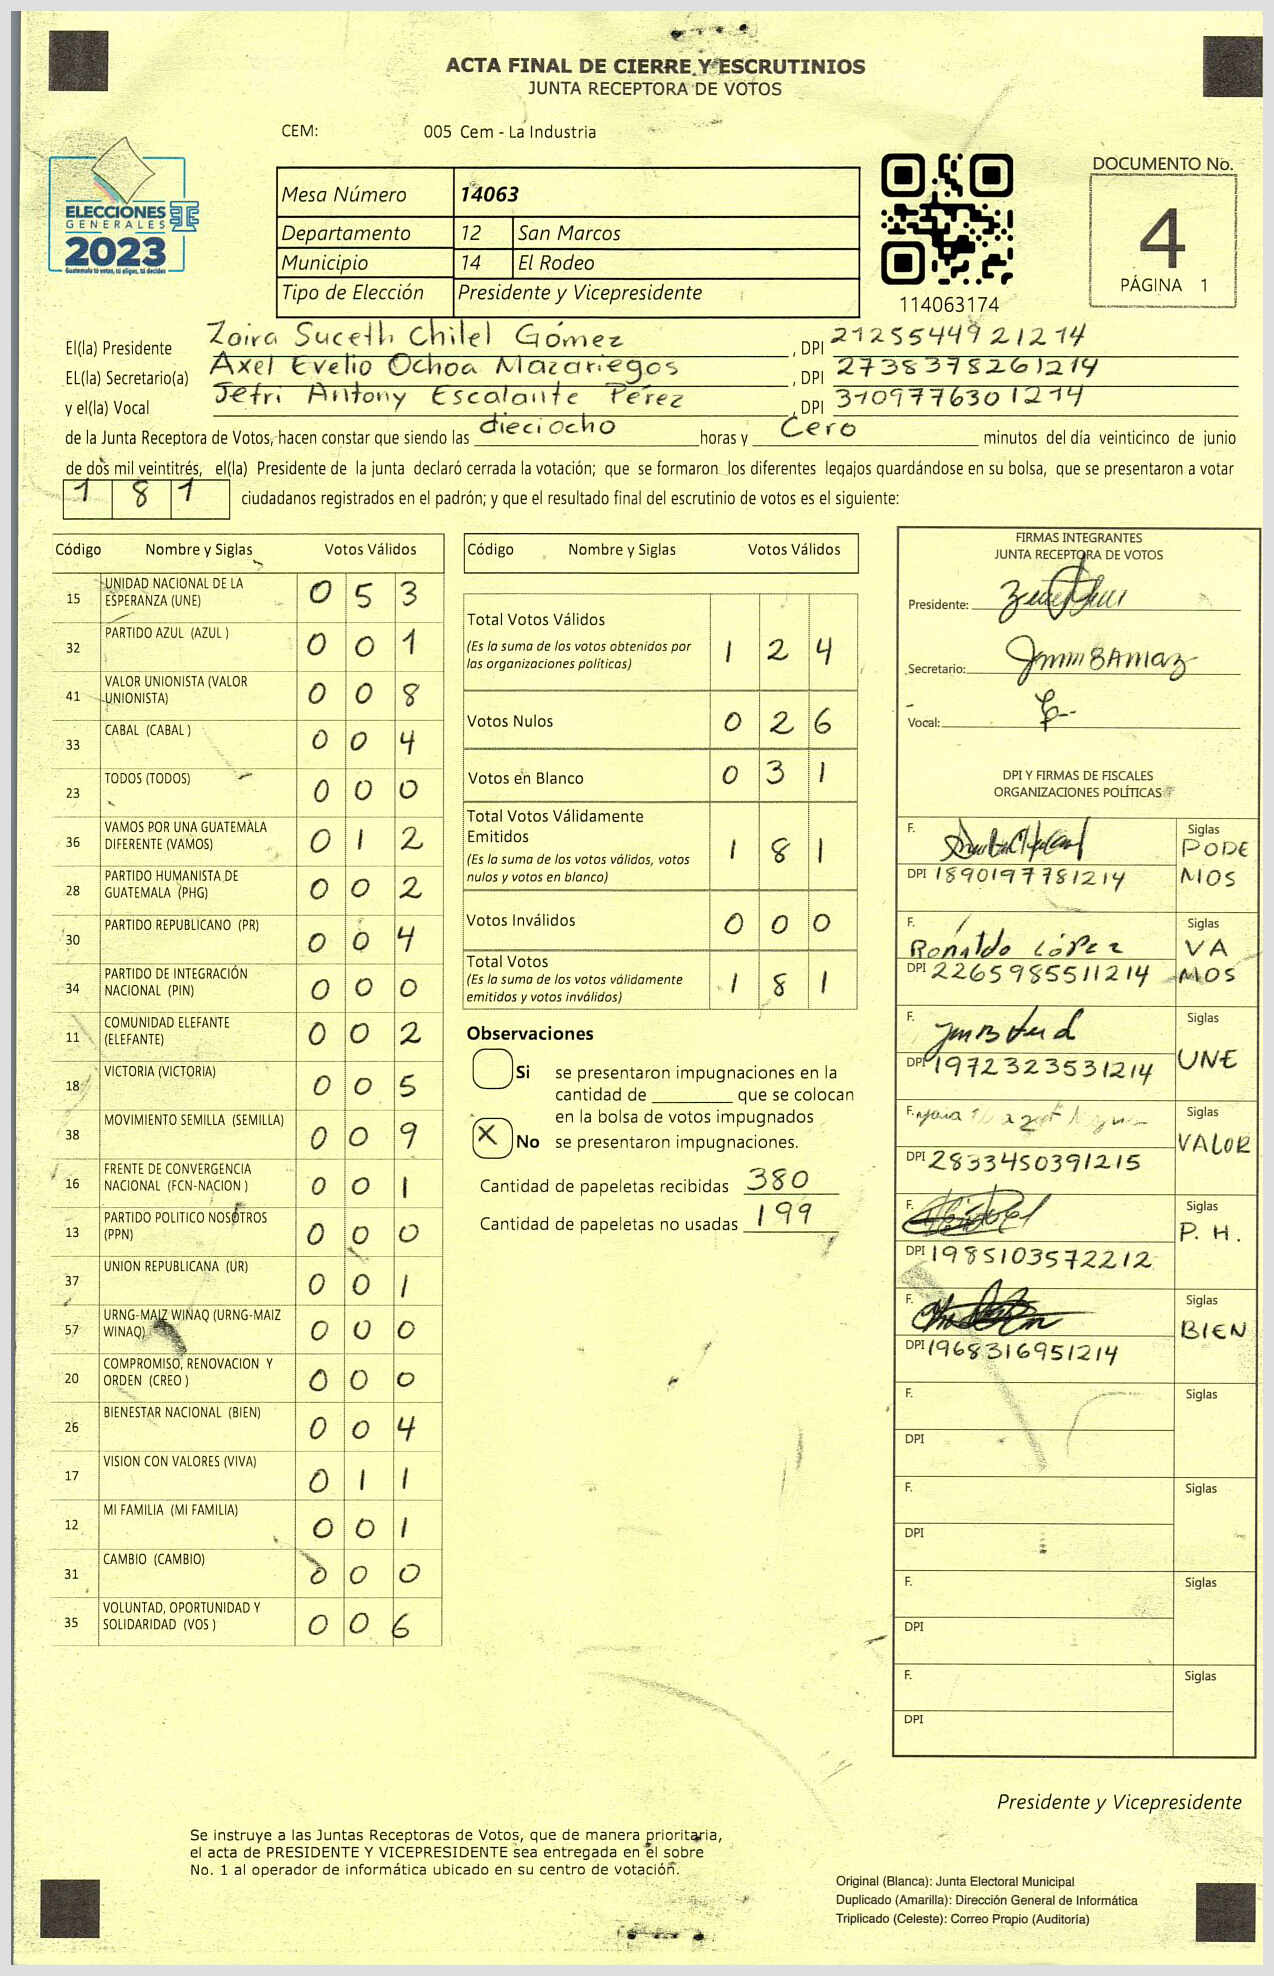 ACTA FINAL DE CIERRE Y ESCRUTINIOS
JUNTA RECEPTORA DE VOTOS
CEM: 005 Cem - La Industria
ELECCIONES
GENERALES
2023
Guatemala tú votas, tú eliges, tú decides
Mesa Número 14063
Departamento 12 San Marcos
Municipio 14 El Rodeo
Tipo de Elección Presidente y Vicepresidente
114063174
DOCUMENTO No.
4
PÁGINA 1
El(la) Presidente Zaira Suceth Chilel Gómez, DPI 2125544921214
EL(la) Secretario(a) Axel Evelio Ochoa Mazariegos, DPI 2738378261214
y el(la) Vocal Jefri Antony Escalante Pérez, DPI 3109776301214
de la Junta Receptora de Votos, hacen constar que siendo las dieciocho horas y Cero minutos del día veinticinco de junio
de dos mil veintitrés, el(la) Presidente de la junta declaró cerrada la votación; que se formaron los diferentes legajos guardándose en su bolsa, que se presentaron a votar
181 ciudadanos registrados en el padrón; y que el resultado final del escrutinio de votos es el siguiente:
Código Nombre y Siglas Votos Válidos
15 UNIDAD NACIONAL DE LA ESPERANZA (UNE) 0 5 3
32 PARTIDO AZUL (AZUL ) 0 0 1
41 VALOR UNIONISTA (VALOR UNIONISTA) 0 0 8
33 CABAL (CABAL ) 0 0 4
23 TODOS (TODOS) 0 0 0
36 VAMOS POR UNA GUATEMALA DIFERENTE (VAMOS) 0 1 2
28 PARTIDO HUMANISTA DE GUATEMALA (PHG) 0 0 2
30 PARTIDO REPUBLICANO (PR) 0 0 4
34 PARTIDO DE INTEGRACIÓN NACIONAL (PIN) 0 0 0
11 COMUNIDAD ELEFANTE (ELEFANTE) 0 0 2
18 VICTORIA (VICTORIA) 0 0 5
38 MOVIMIENTO SEMILLA (SEMILLA) 0 0 9
16 FRENTE DE CONVERGENCIA NACIONAL (FCN-NACION ) 0 0 1
13 PARTIDO POLITICO NOSOTROS (PPN) 0 0 0
37 UNION REPUBLICANA (UR) 0 0 1
57 URNG-MAIZ WINAQ (URNG-MAIZ WINAQ) 0 0 0
20 COMPROMISO, RENOVACION Y ORDEN (CREO ) 0 0 0
26 BIENESTAR NACIONAL (BIEN) 0 0 4
17 VISION CON VALORES (VIVA) 0 1 1
12 MI FAMILIA (MI FAMILIA) 0 0 1
31 CAMBIO (CAMBIO) 0 0 0
35 VOLUNTAD, OPORTUNIDAD Y SOLIDARIDAD (VOS ) 0 0 6
Código Nombre y Siglas Votos Válidos
Total Votos Válidos 1 2 4
(Es la suma de los votos obtenidos por
las organizaciones políticas)
Votos Nulos 0 2 6
Votos en Blanco 0 3 1
Total Votos Válidamente
Emitidos 1 8 1
(Es la suma de los votos válidos, votos
nulos y votos en blanco)
Votos Inválidos 0 0 0
Total Votos 1 8 1
(Es la suma de los votos válidamente
emitidos y votos inválidos)
Observaciones
Si se presentaron impugnaciones en la
cantidad de ________ que se colocan
en la bolsa de votos impugnados
X No se presentaron impugnaciones.
Cantidad de papeletas recibidas 380
Cantidad de papeletas no usadas 199
FIRMAS INTEGRANTES
JUNTA RECEPTORA DE VOTOS
Presidente:
Secretario:
Vocal:
DPI Y FIRMAS DE FISCALES
ORGANIZACIONES POLÍTICAS
F. Siglas PODE
DPI 1890197781214 MOS
F. Ronaldo López Siglas VA
DPI 2265985511214 MOS
F. Siglas
DPI 1972323531214 UNE
F. Siglas
DPI 2833450391215 VALOR
F. Siglas
DPI 1985103572212 P. H.
F. Siglas
DPI 1968316951214 BIEN
F. Siglas
DPI
F. Siglas
DPI
F. Siglas
DPI
F. Siglas
DPI
Presidente y Vicepresidente
Se instruye a las Juntas Receptoras de Votos, que de manera prioritaria,
el acta de PRESIDENTE Y VICEPRESIDENTE sea entregada en el sobre
No. 1 al operador de informática ubicado en su centro de votación.
Original (Blanca): Junta Electoral Municipal
Duplicado (Amarilla): Dirección General de Informática
Triplicado (Celeste): Correo Propio (Auditoría)